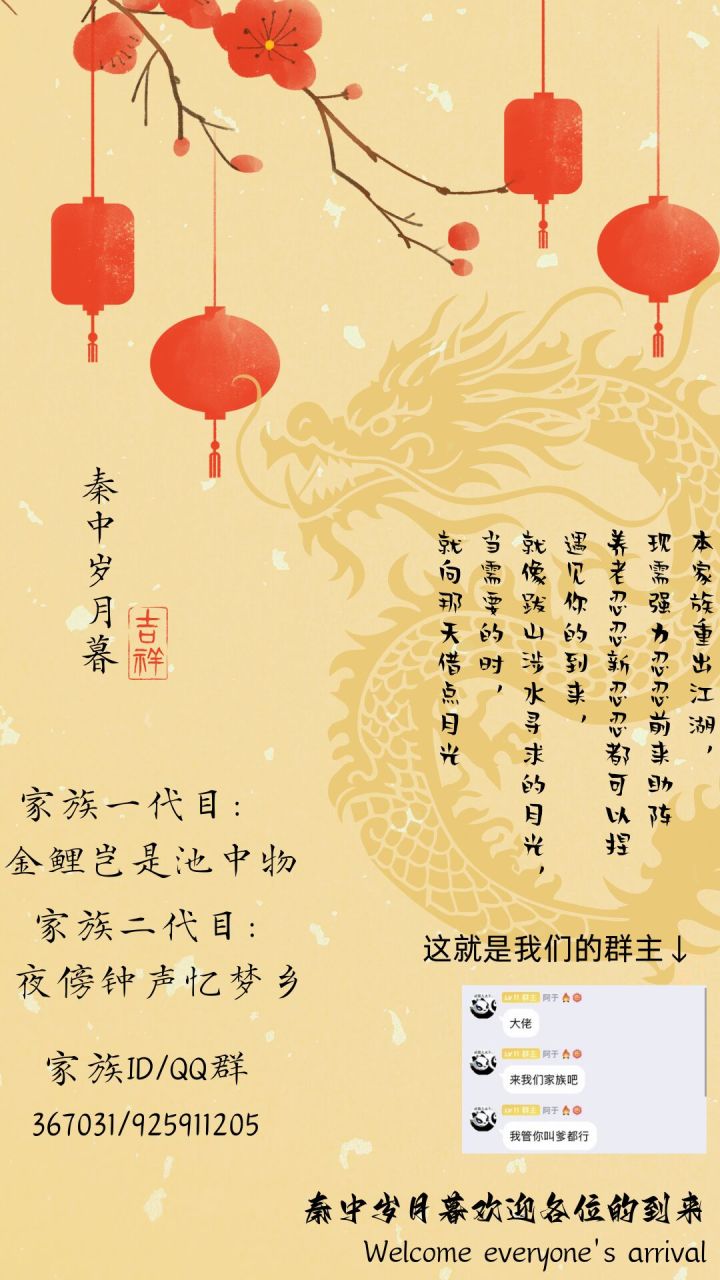 秦中岁月暮
吉祥
本家族重出江湖，
现需强力忍忍前来助阵
养老忍忍新忍忍都可以捏
遇见你的到来，
就像跋山涉水寻求的月光，
当需要的时，
就向那天借点月光
家族一代目：
金鲤岂是池中物
家族二代目：
夜傍钟声忆梦乡
家族ID/QQ群
367031/925911205
这就是我们的群主↓
LV11 群主 阿于
大佬
LV11 群主 阿于
来我们家族吧
LV11 群主 阿于
我管你叫爹都行
秦中岁月暮欢迎各位的到来
Welcome everyone's arrival